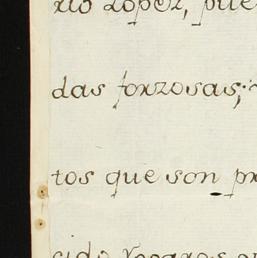 rio Lopez, pue
das forzosas;
tos que son pr
cido